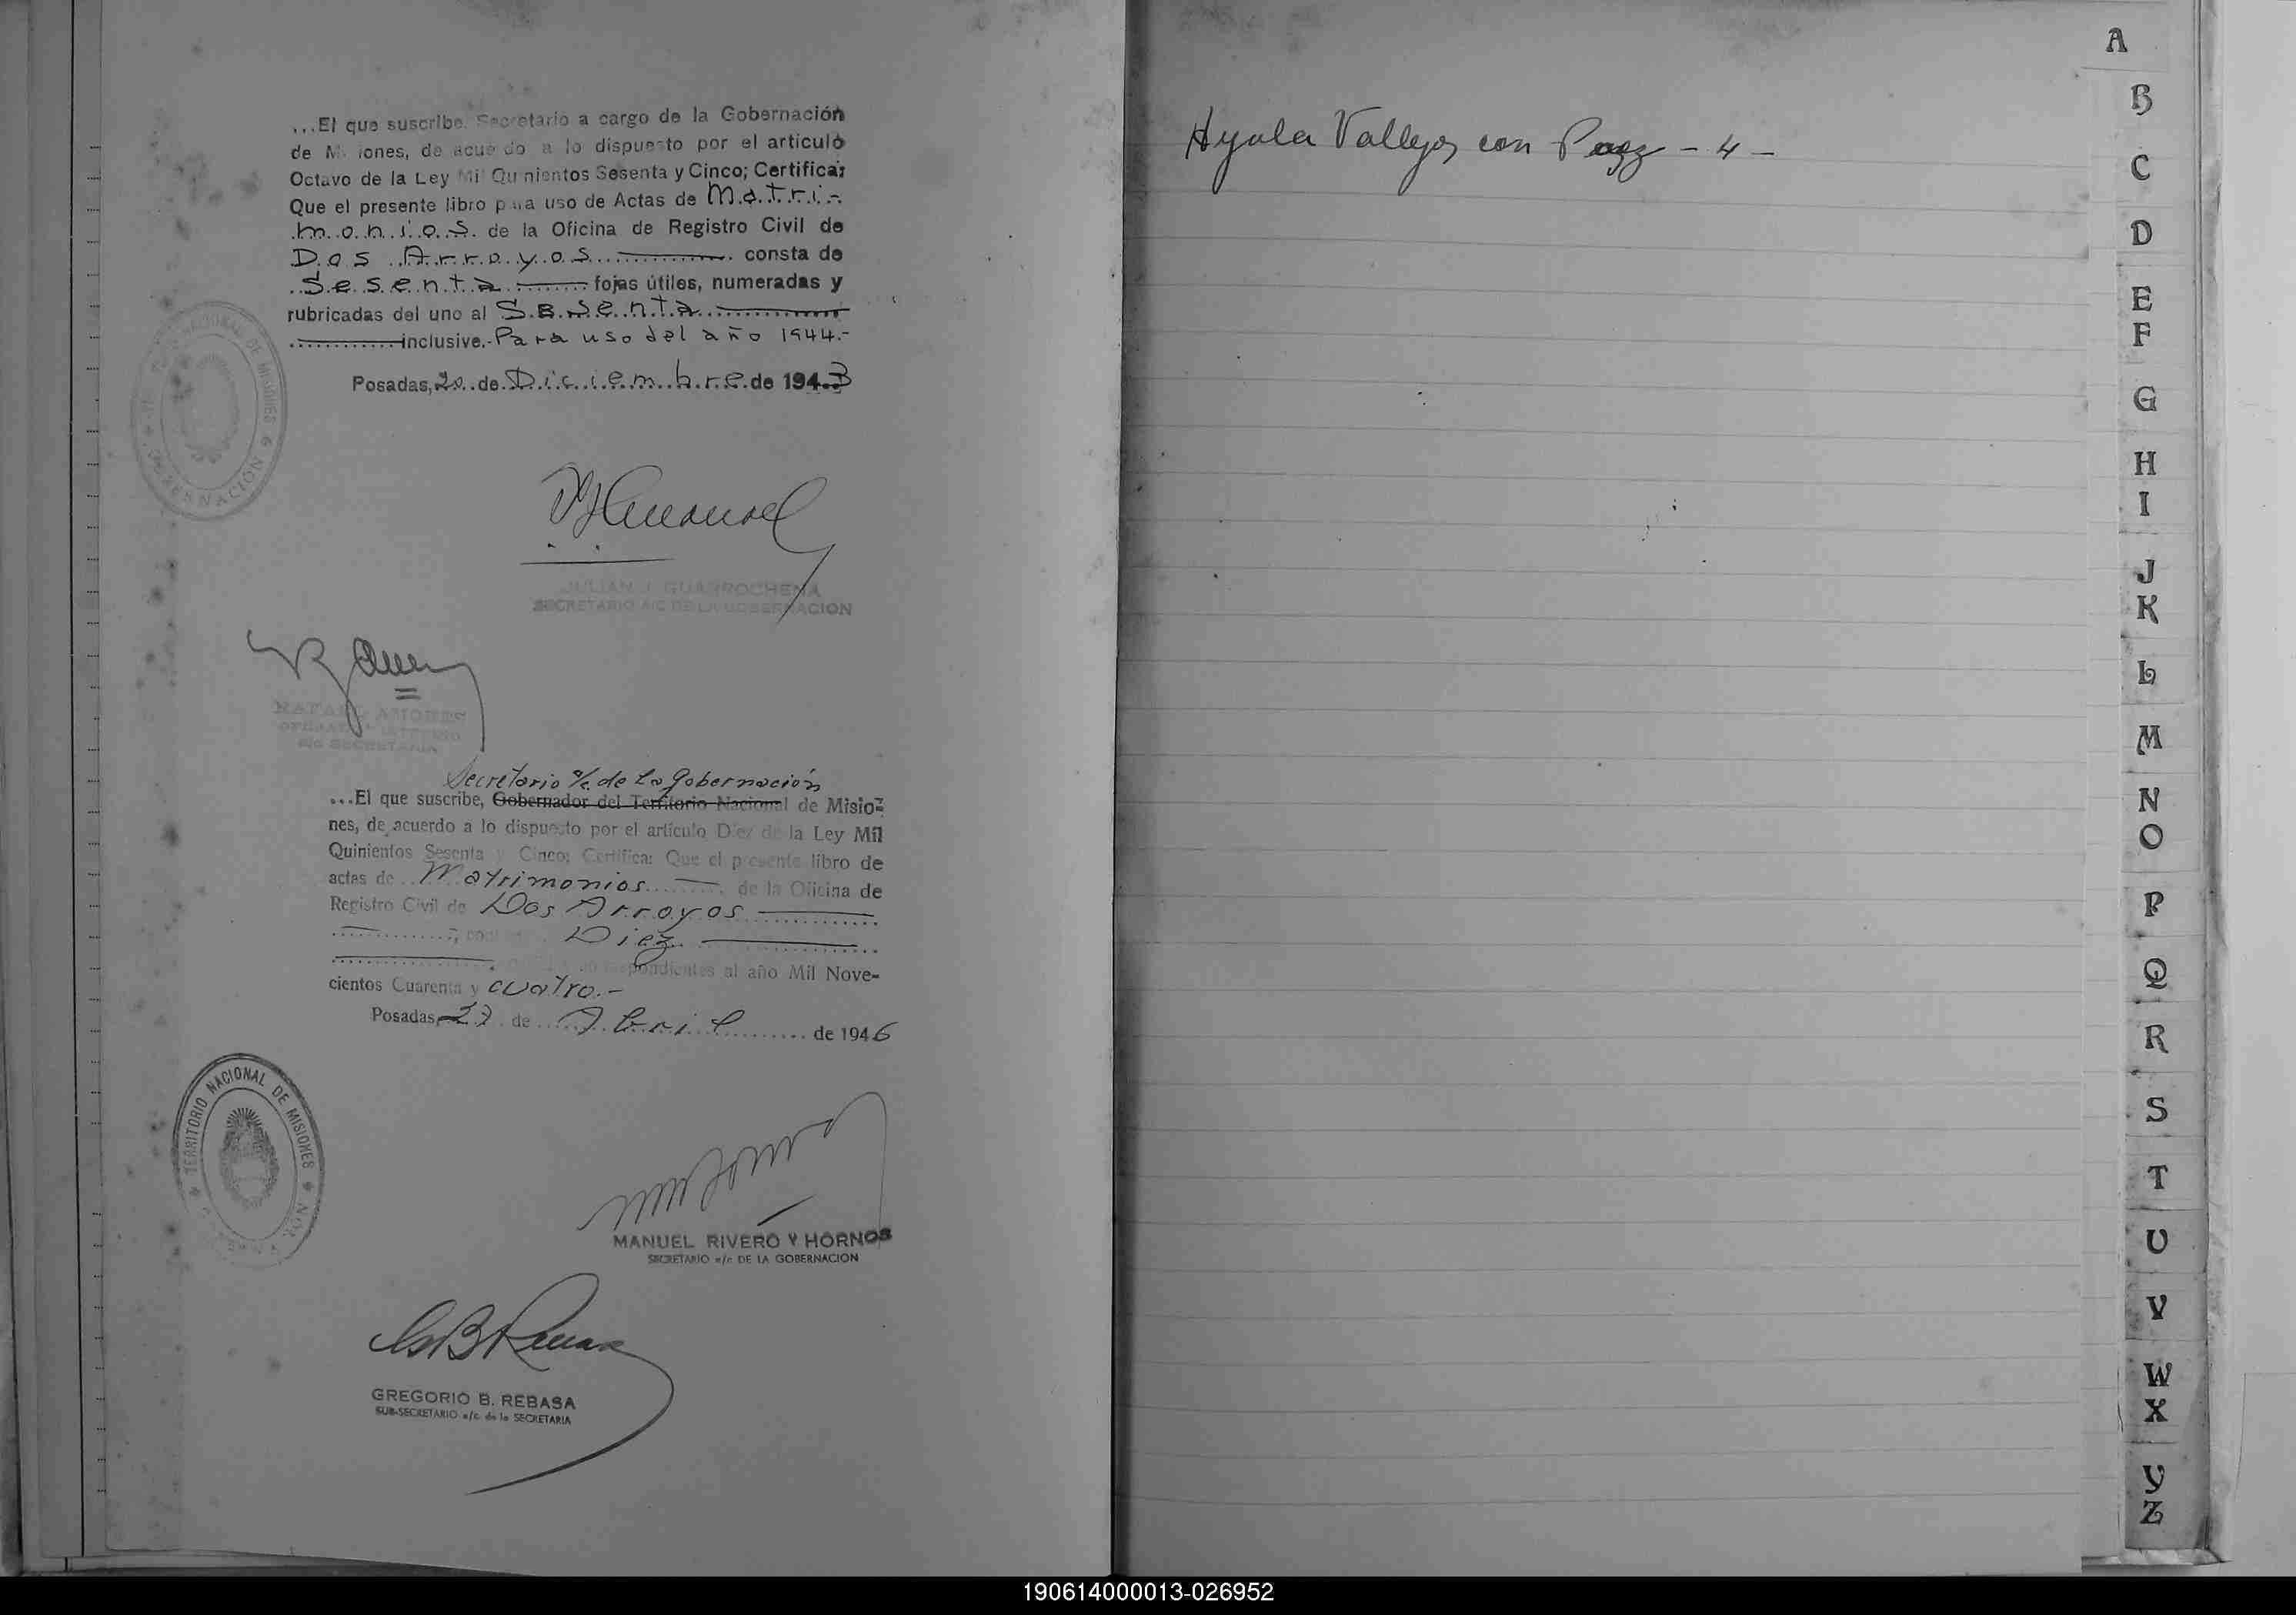 ...El que suscribe, Secretario a cargo de la Gobernación
de Misiones, de acuerdo a lo dispuesto por el articulo
Octavo de la Ley Mil Quinientos Sesenta y Cinco; Certifica:
Que el presente libro para uso de Actas de Matri-
monios de la Oficina de Registro Civil de
Dos Arroyos consta de
Sesenta fojas útiles, numeradas y
rubricadas del uno al Sesenta
inclusive.- Para uso del año 1944.-
Posadas, 20 de Diciembre de 1943
JULIAN J. GUARROCHENA
SECRETARIO A/C DE LA GOBERNACION
RAFAEL AMORES
a/c SECRETARIA
Secretario a/c. de la Gobernación
...El que suscribe, Gobernador del Territorio Nacional de Misio-
nes, de acuerdo a lo dispuesto por el artículo Diez de la Ley Mil
Quinientos Sesenta y Cinco; Certifica: Que el presente libro de
actas de Matrimonios de la Oficina de
Registro Civil de Dos Arroyos
Diez
correspondientes al año Mil Nove-
cientos Cuarenta y cuatro.-
Posadas, 27 de Abril de 1946
TERRITORIO NACIONAL DE MISIONES
MANUEL RIVERO Y HORNOS
SECRETARIO a/c DE LA GOBERNACION
GREGORIO B. REBASA
SUB-SECRETARIO a/c. de la SECRETARIA
Ayala Vallejos con - 4 -
A
B
C
D
E
F
G
H
I
J
K
L
M
N
O
P
Q
R
S
T
U
V
W
X
Y
Z
190614000013-026952